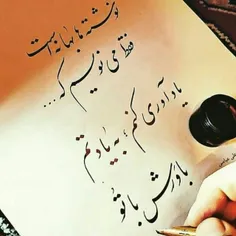 نوشته ها بهانه است
فقط می نویسم که...
یادآوری کنم ؛ به یادتم
باورش با تو